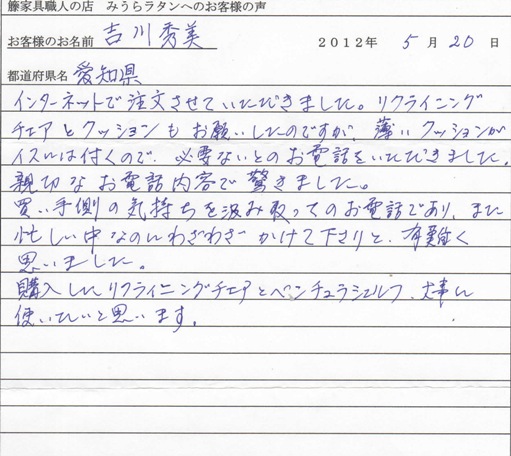 籐家具職人の店　みうらラタンへのお客様の声
お客様のお名前　吉川秀美　2012年 5月 20日
都道府県名　愛知県
インターネットで注文させていただきました。リクライニング
チェアとクッションもお願いしたのですが、薄いクッションが
イスには付くので、必要ないとのお電話をいただきました。
親切なお電話内容で驚きました。
買い手側の気持ちを汲み取ってのお電話であり、また
忙しい中なのにわざわざかけて下さりと、有難く
思いました。
購入したリクライニングチェアとベンチュラシェルフ、大事に
使いたいと思います。